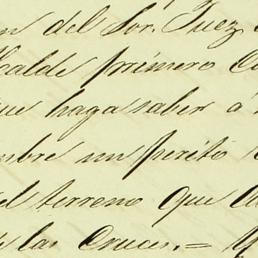 n del Sor. Juez
calde primero C
ue haga saber á
mbre un perito
el terreno que
e las Cruces.=